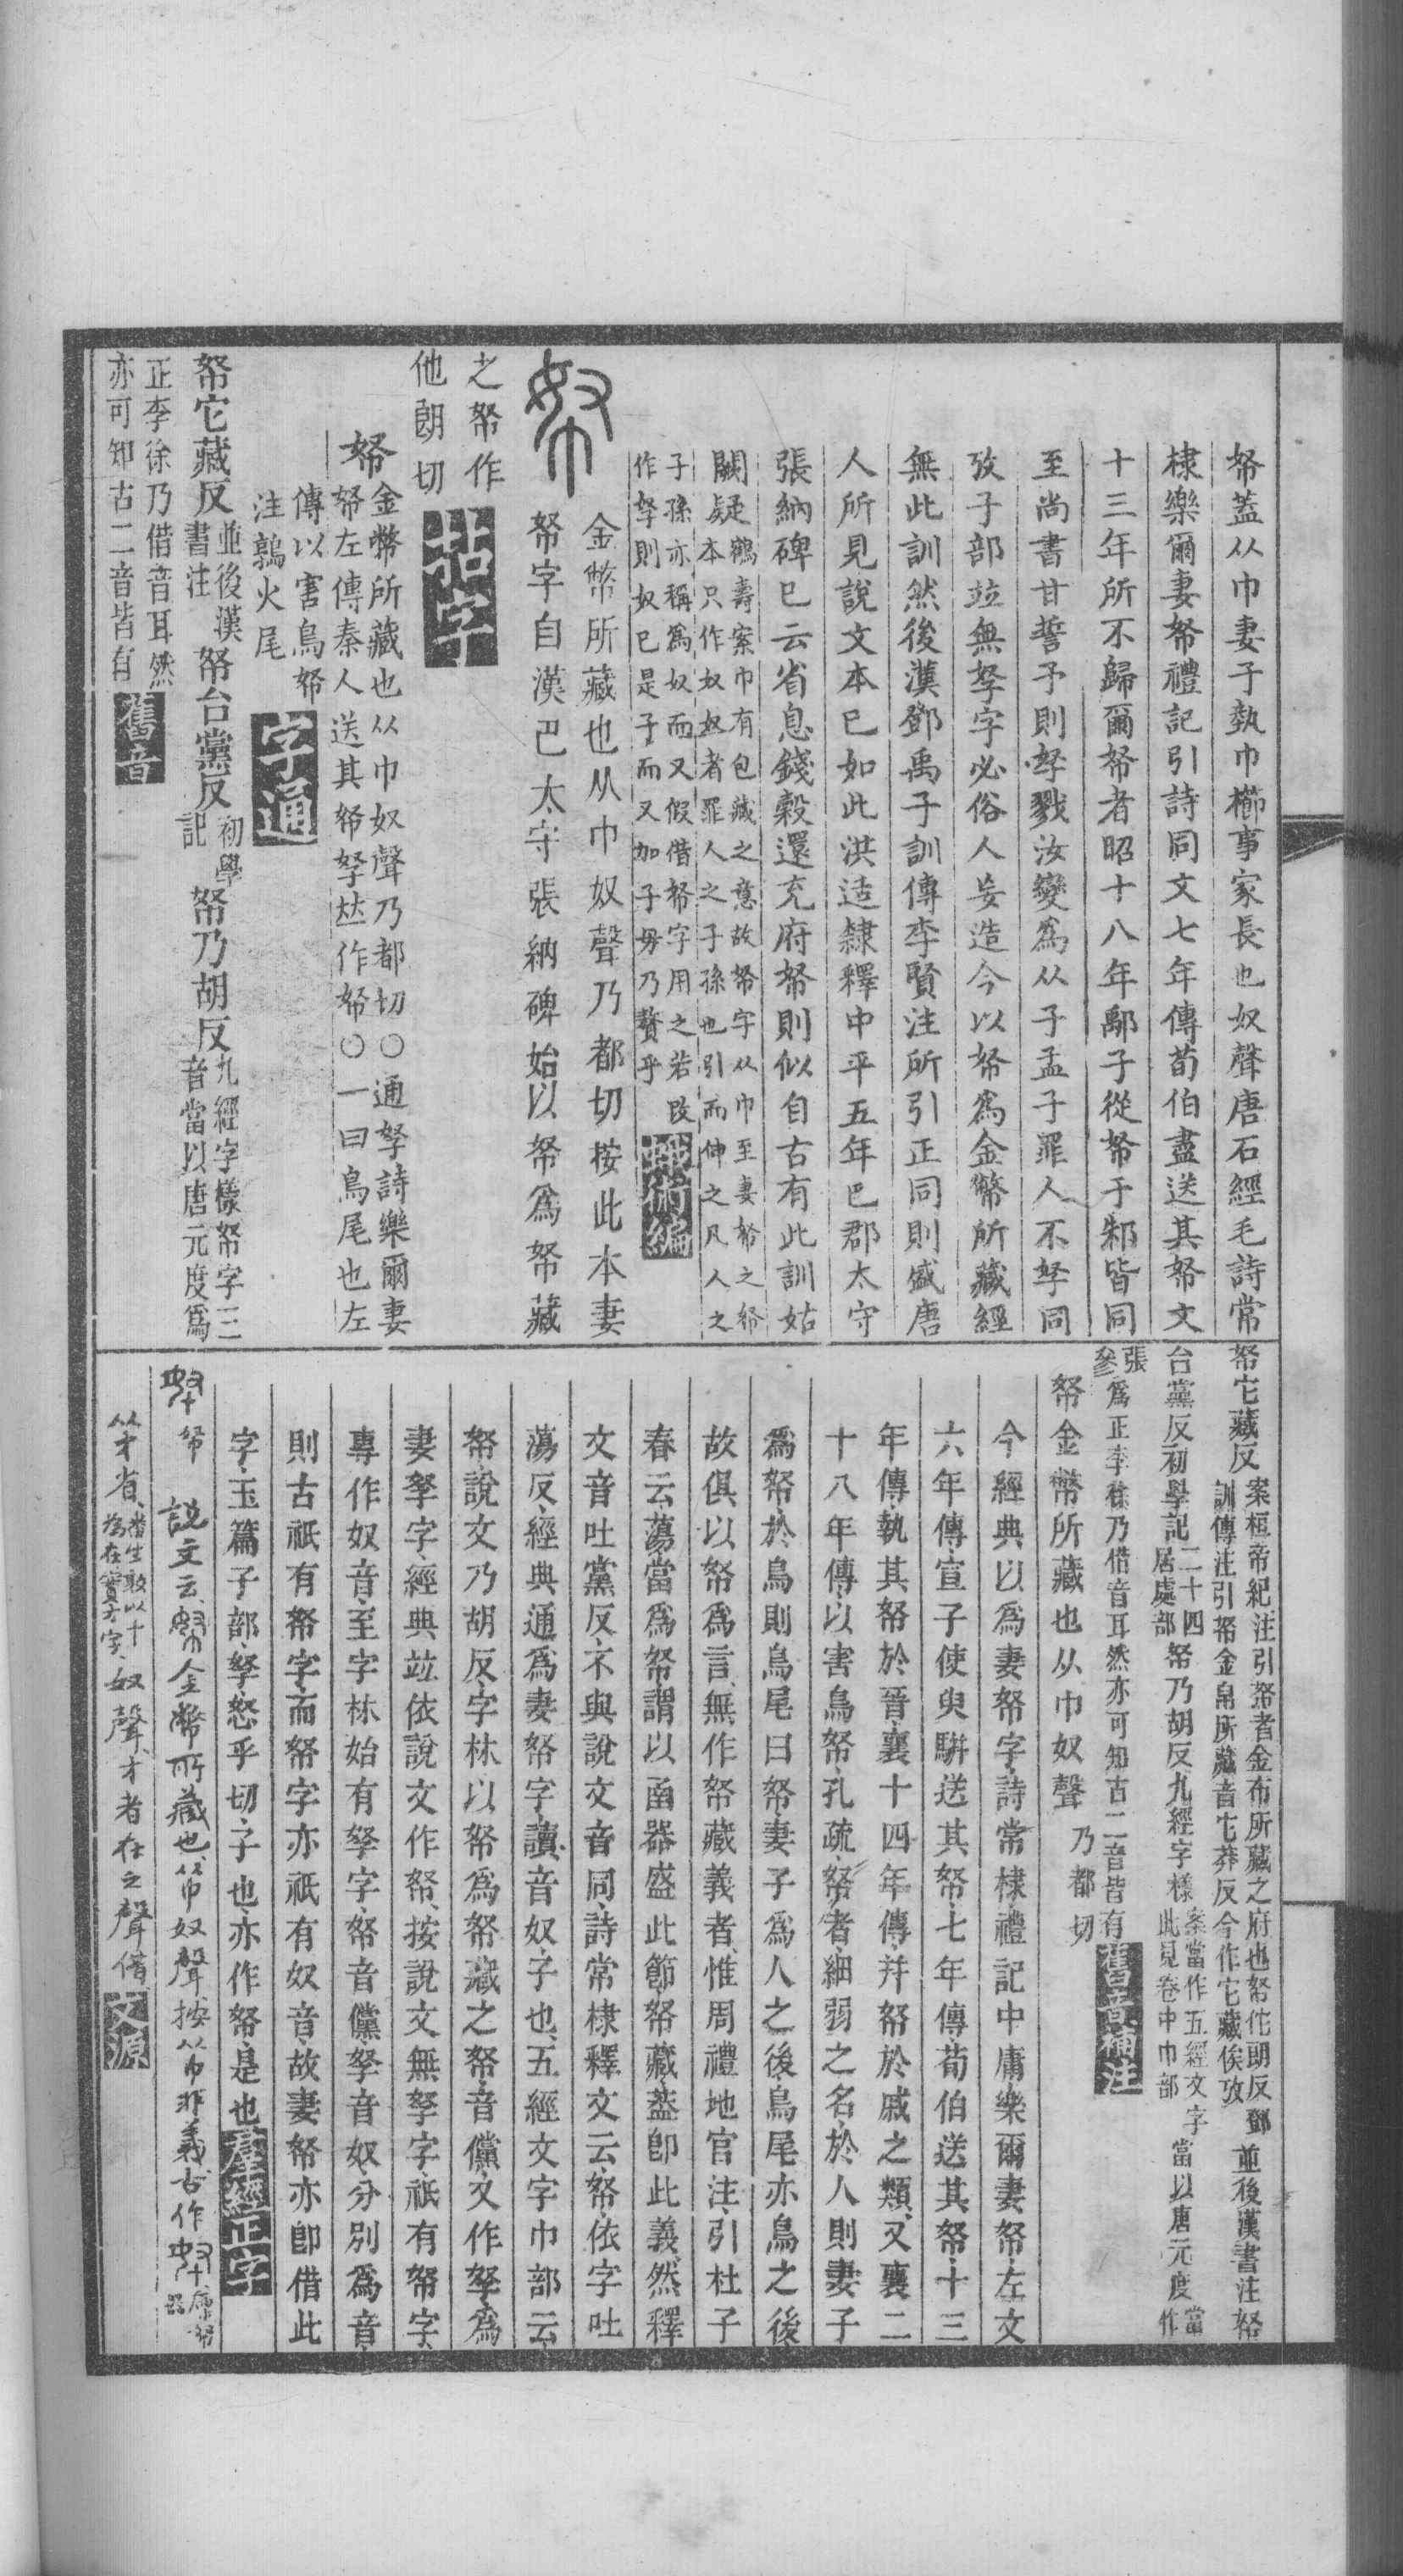 帑蓋从巾妻子執巾櫛事家長也奴聲唐石經毛詩常
棣樂爾妻帑禮記引詩同文七年傳荀伯盡送其帑文
十三年所不歸爾帑者昭十八年鄅子從帑于邾皆同
至尚書甘誓予則孥戮汝變爲从子孟子罪人不孥同
攷子部竝無孥字必俗人妄造今以帑爲金幣所藏經
無此訓然後漢鄧禹子訓傳李賢注所引正同則盛唐
人所見說文本已如此洪适隸釋中平五年巴郡太守
張納碑已云省息錢穀還充府帑則似自古有此訓姑
闕疑
鶴壽案巾有包藏之意故帑字从巾至妻帑之帑
本只作奴奴者罪人之子孫也引而伸之凡人之
子孫亦稱爲奴而又假借帑字用之若改
作孥則奴已是子而又加子毋乃贅乎
蛾術編
帑
金幣所藏也从巾奴聲乃都切按此本妻
帑字自漢巴太守張納碑始以帑爲帑藏
之帑作
他朗切
帑
金幣所藏也从巾奴聲乃都切○通孥詩樂爾妻
帑左傳秦人送其帑孥竝作帑○一曰鳥尾也左
傳以害鳥帑
注鶉火尾
字通
帑它藏反
並後漢
書注
帑台黨反
初學
記
帑乃胡反
九經字樣帑字三
音當以唐元度爲
正李徐乃借音耳然
亦可知古二音皆有
舊音
帑它藏反
案桓帝紀注引帑者金布所藏之府也帑佗朗反鄧
訓傳注引帑金帛所藏音它莽反今作它藏俟攷
並後漢書注帑
台黨反初學記
二十四
居處部
帑乃胡反九經字樣
案當作五經文字
此見卷中巾部
當以唐元度
當作
張參
爲正李徐乃借音耳然亦可知古二音皆有
舊音補注
帑金幣所藏也从巾奴聲
乃都切
今經典以爲妻帑字詩常棣禮記中庸樂爾妻帑左文
六年傳宣子使臾駢送其帑七年傳荀伯送其帑十三
年傳執其帑於晉襄十四年傳并帑於戚之類又襄二
十八年傳以害鳥帑孔疏帑者細弱之名於人則妻子
爲帑於鳥則鳥尾曰帑妻子爲人之後鳥尾亦鳥之後
故俱以帑爲言無作帑藏義者惟周禮地官注引杜子
春云蕩當爲帑謂以函器盛此節帑藏葢卽此義然釋
文音吐黨反不與說文音同詩常棣釋文云帑依字吐
蕩反經典通爲妻帑字讀音奴子也五經文字巾部云
帑說文乃胡反字林以帑爲帑藏之帑音儻又作孥爲
妻孥字經典竝依說文作帑按說文無孥字祇有帑字
專作奴音至字林始有孥字帑音儻孥音奴分別爲音
則古祇有帑字而帑字亦祇有奴音故妻帑亦卽借此
字玉篇子部孥怒乎切子也亦作帑是也
羣經正字
帑 說文云帑金幣所藏也从巾奴聲按从巾非義古作
从才省
奴聲才者在之聲借
文源